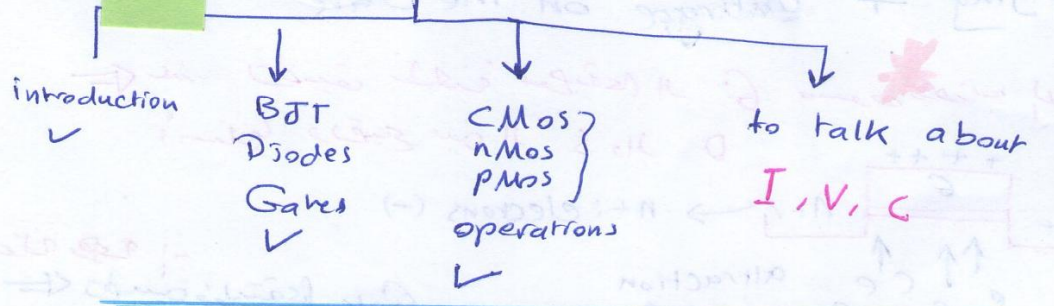 introduction
BJT
Diodes
Gates
CMos
nMos
pMos
operations
to talk about
I, V, C